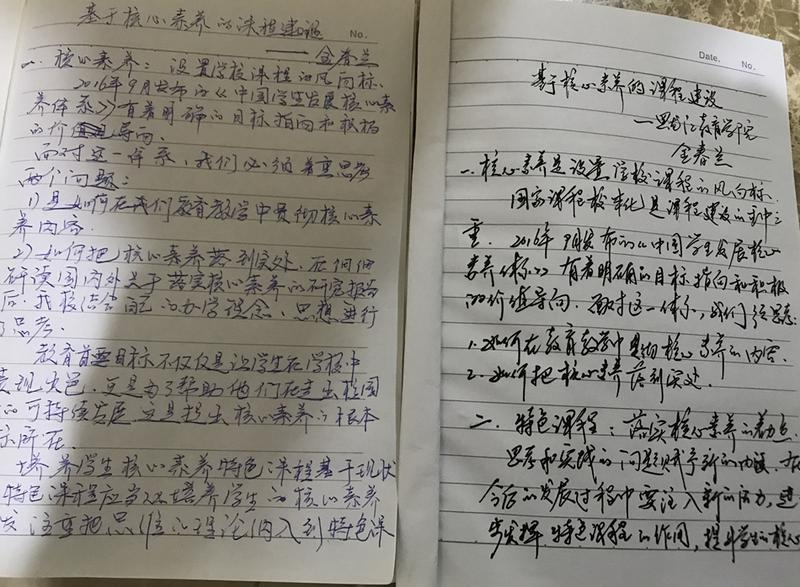 基于核心素养的课程建设
No.
——金春兰
一、核心素养：设置学校课程的风向标.
2016年9月发布的《中国学生发展核心素
养体系》有着明确的目标指向和积极
的价值导向.
面对这一体系，我们必须着重思考
两个问题：
1)是如何在我们教育教学中贯彻核心素
养内容.
2)如何把核心素养落到实处.
研读国内外关于落实核心素养的研究报告
后，我校结合自己的办学理念、思想进行
了思考.
教育首要目标不仅仅是让学生在学校中
表现出色，更是为了帮助他们在走出校园
的可持续发展，这是提出核心素养的根本
所在.
培养学生核心素养特色课程基于现状
特色课程应当以培养学生的核心素养
注重把思维理论纳入到特色课
Date. No.
基于核心素养的课程建设
——黑龙江教育学院
金春兰
一.核心素养是设置学校课程的风向标.
国家课程校本化是课程建设的重中之
重. 2016年9月发布的《中国学生发展核心
素养体系》有着明确的目标指向和积极
的价值导向.面对这一体系，我们
1.如何在教育教学中贯彻核心素养的内容.
2.如何把核心素养落到实处.
二.特色课程：落实核心素养的着力点.
思考和实践的问题赋予新的内涵.在
今后的发展过程中要注入新的活力，进一
步发挥特色课程的作用，提升学生的核心